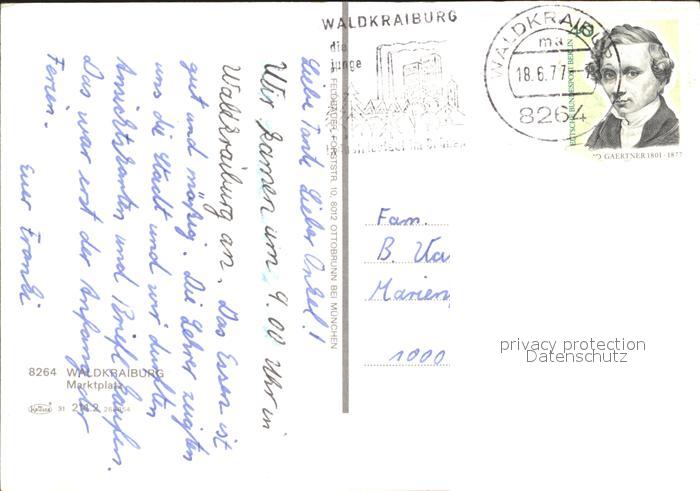 WALDKRAIBURG
die
junge
WALDKRAIBURG
ma
18.6.77
8264
40
DEUTSCHE BUNDESPOST BERLIN
GAERTNER 1801-1877
Liebe Tante Lieber Onkel!
Wir kamen um 9.00 Uhr in
Waldkraiburg an. Das Essen ist
gut und mäßig. Die Lehrer zeigten
uns die Stadt und wir durften
Ansichtskarten und Briefe kaufen.
Das war erst der Anfang der
Ferien.
Euer Frandi
FORSTSTR. 10, 8012 OTTOBRUNN BEI MÜNCHEN
Fam.
B. Va
Marien
1000
privacy protection
Datenschutz
8264 WALDKRAIBURG
Marktplatz
31 214.2